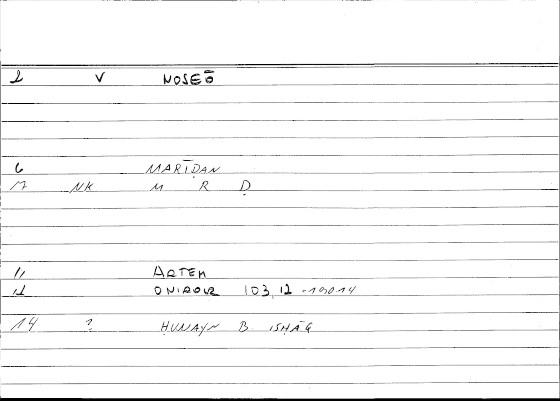 1 V NOSEŌ
6 MARĪḌAN
7 NK M R Ḍ
11 ARTEM
12 ONIROCR 103,12 -19014
14 ? ḤUNAYN B ISḤĀQ